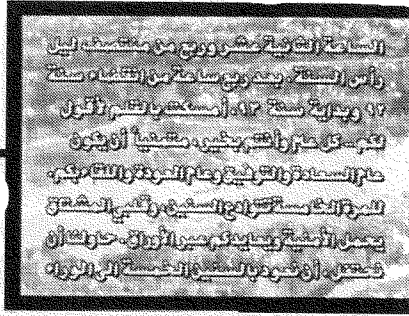 الساعة الثانية عشر وربع من منتصف ليل
رأس السنة. بعد ربع ساعة من إنقضاء سنة
٩٢ وبداية سنة ٩٣. أمسكت بالقلم لأقول
لكم.. كل عام وأنتم بخير، متمنياً أن يكون
عام السعادة والتوفيق وعام العودة واللقاء بكم.
للمرة الخامسة تتوادع السنين، وقلبي المشتاق
يحمل الأمنية ويعايدكم عبر الأوراق. حاولت أن
نحتفل، أن نعود بالسنين الخمسة الى الوراء